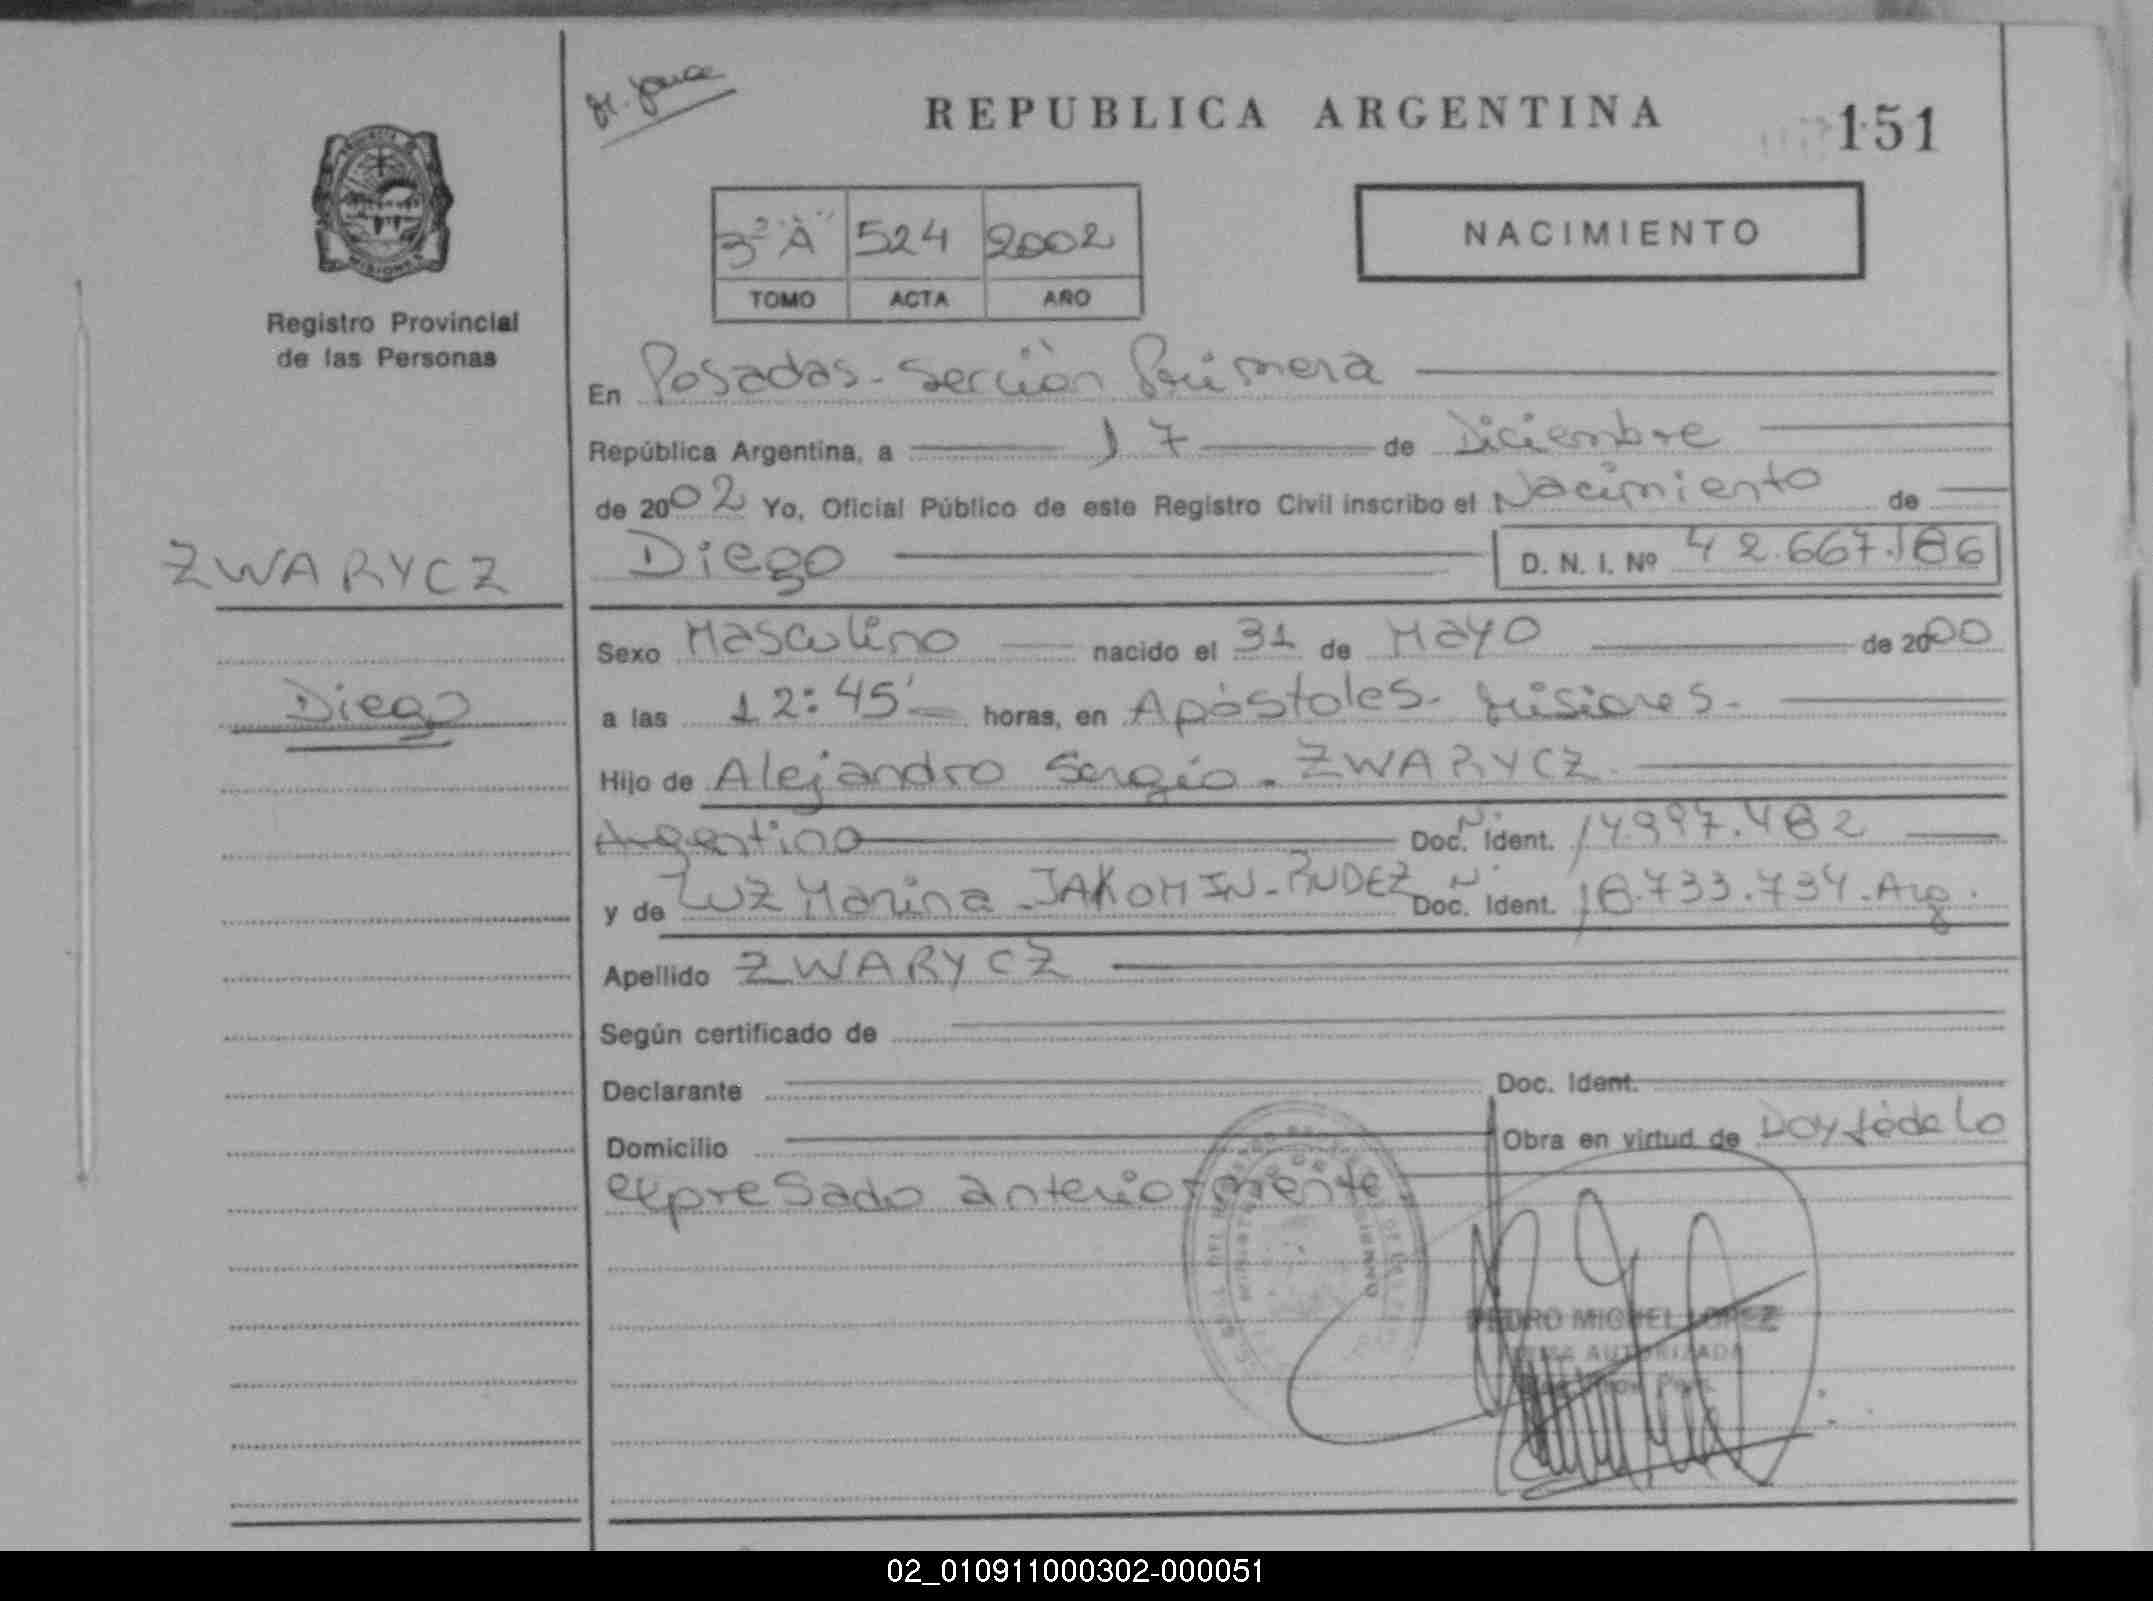 REPUBLICA ARGENTINA
151
NACIMIENTO
3º "A" 524 2002
TOMO ACTA AÑO
MISIONES
Registro Provincial
de las Personas
En Posadas - Sección Primera
República Argentina, a 17 de Diciembre
de 2002 Yo, Oficial Público de este Registro Civil inscribo el Nacimiento de
Diego D. N. I. Nº 42.667.186
ZWARYCZ
Diego
Sexo Masculino nacido el 31 de Mayo de 2000
a las 12:45' horas, en Apóstoles - Misiones.
Hijo de Alejandro Sergio - ZWARYCZ
Argentino Doc. N. Ident. 14.997.482
y de Luz Marina - JAKOMIN - RUDEZ Doc. N. Ident. 18.733.734 - Arg.
Apellido ZWARYCZ
Según certificado de
Declarante Doc. Ident.
Domicilio Obra en virtud de Doy fé de lo
expresado anteriormente
PEDRO MIGUEL LOPEZ
FIRMA AUTORIZADA
02_010911000302-000051